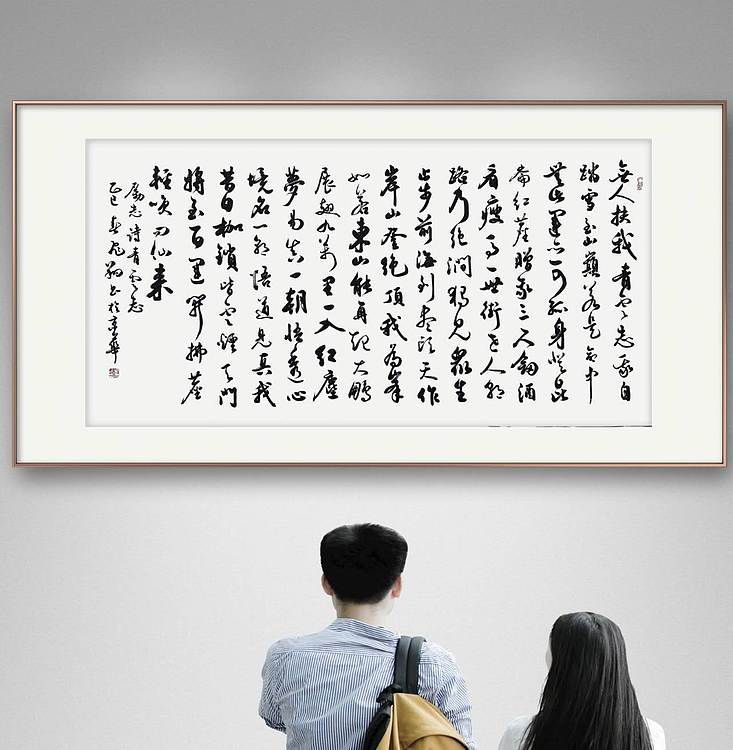 無人扶我青雲志我自
踏雪至山巔若是命中
無此運亦可孤身登昆
侖紅塵贈我三尺劍酒
看瘦馬一世街世人都
路乃絕澗獨見眾生
止步前海到盡頭天作
岸山登絕頂我為峯
如若東山能再起大鵬
展翅九萬里一入紅塵
夢易真一朝悟透心
境名一朝悟道見真我
昔日枷鎖皆雲煙天門
將至百運開拂塵
輕吹問仙来
勵志詩青雲志
乙巳春書於京華